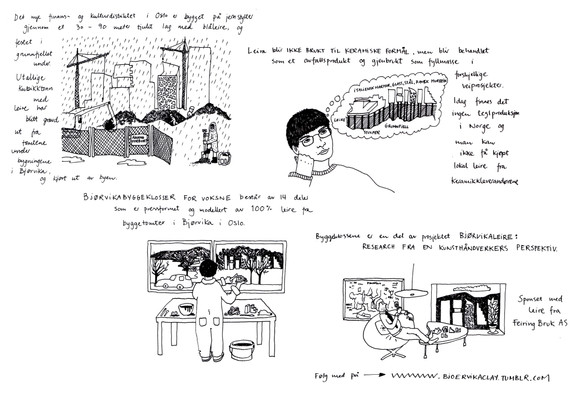 Det nye finans- og kulturdistriktet i Oslo er bygget på jernsøyler
gjennom et 30 - 90 meter tjukt lag med blåleire, og
festet i
grunnfjellet
under
Utallige
kubikktonn
med
leire har
blitt gravd
ut fra
tomtene
under
bygningene
i Bjørvika,
og kjørt ut av byen.
Leira blir IKKE BRUKT TIL KERAMISKE FORMÅL, men blir behandlet
som et avfallsprodukt og gjenbrukt som fyllmasse i
forskjellige
veiprosjekter.
Idag finnes det
ingen teglproduksjon
i Norge og
man kan
ikke få kjøpt
lokal leire fra
keramikkleverandørene
LEIRE
GRUNNFJELL
BJØRVIKABYGGEKLOSSER FOR VOKSNE består av 14 deler
som er pressformet og modellert av 100% leire fra
byggetomter i Bjørvika i Oslo.
Byggeklossene er en del av prosjektet BJØRVIKALEIRE:
RESEARCH FRA EN KUNSTHÅNDVERKERS PERSPEKTIV.
Sponset med
leire fra
Feiring Bruk AS
Følg med på → WWWWWW.BJOERVIKACLAY.TUMBLR.COM